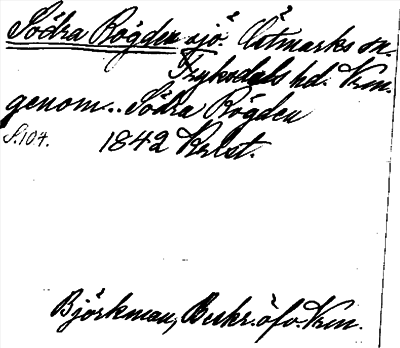 Södra Rögden sjö. Östmarks sn.
Fryksdals hd. Vrm.
genom.. Södra Rögden
S.104. 1842 Krist.
Björkman, Beskr. öfv. Vrm.